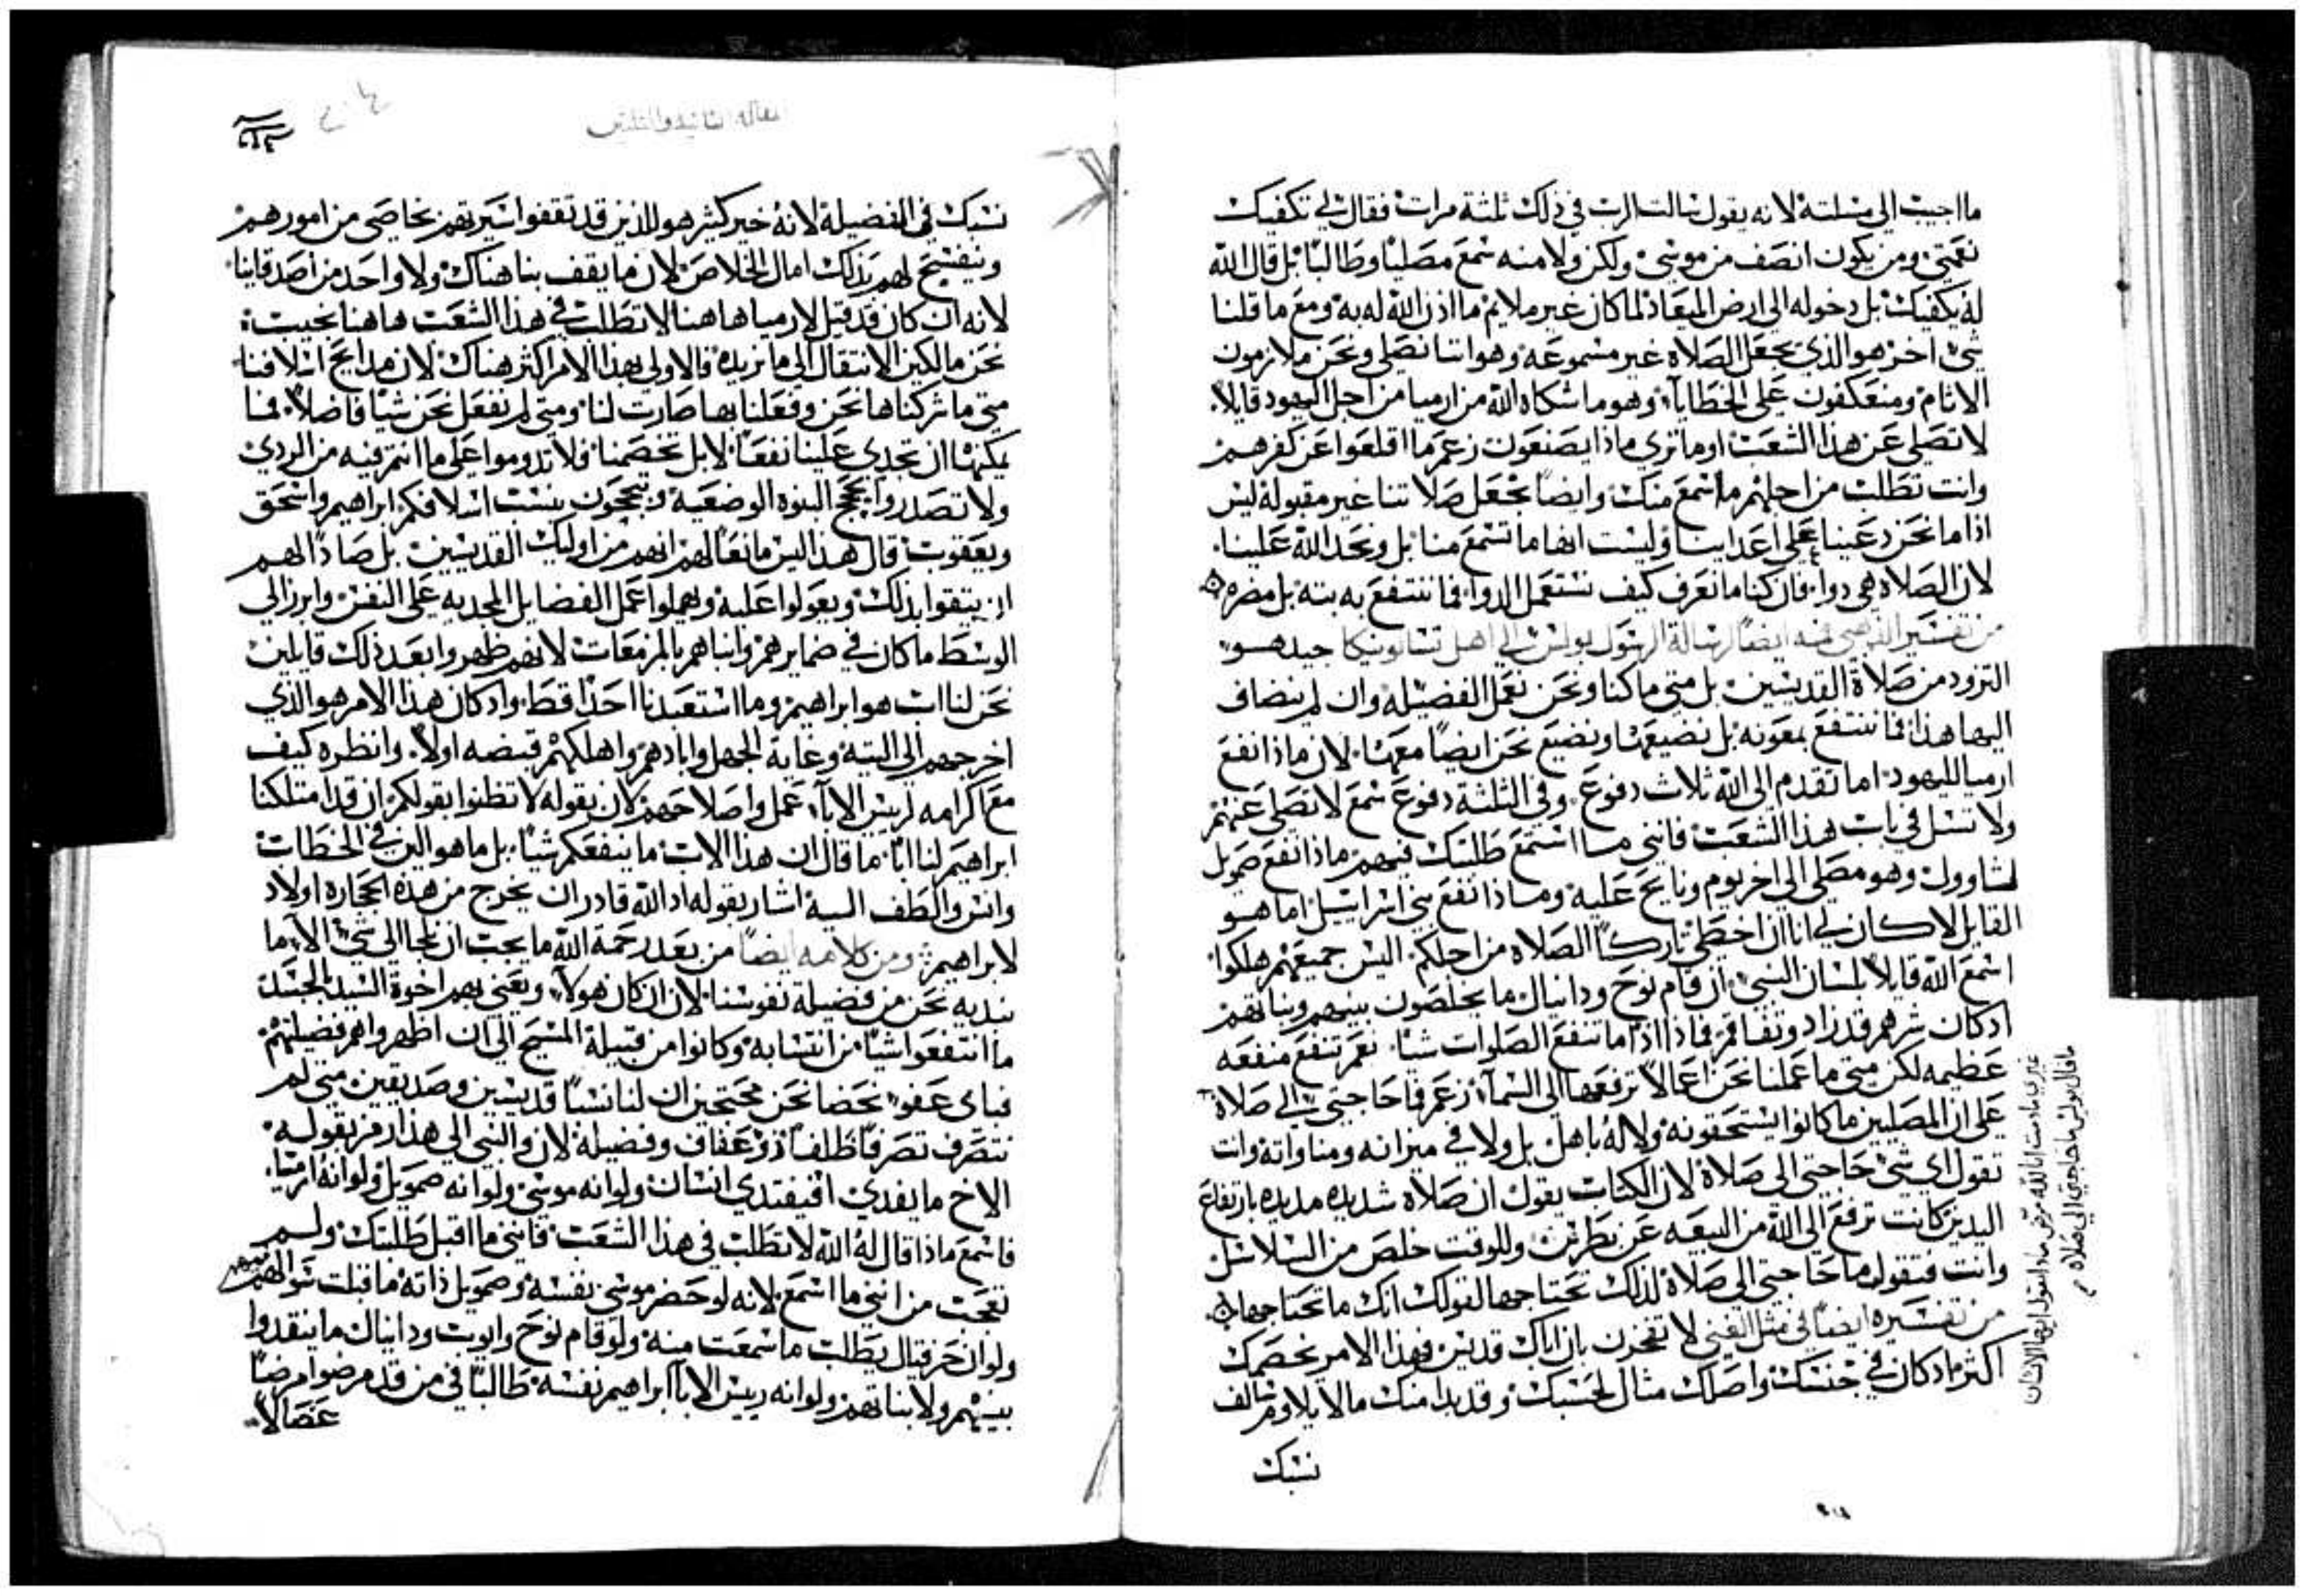 ما اجيب الي مسلته لانه يقول سالت الرب في ذلك ثلثة مرات فقال لي تكفيك
نعمتي ومن يكون انصف من موسي ولكن ولا منه سمع مصليا وطالبا بل قال الله
له يكفيك بل دخوله الي ارض الميعاد لما كان غير ملايم ما اذن الله له به ومع ما قلنا
شي اخر هو الذي يجعل الصلاه غير مسموعه وهو اننا نصلي ونحن ملازمون
الاثام ومنعكفون علي الخطايا وهو ما اشكاه الله من ارميا من اجل اليهود قايلا
لا تصلي عن هذا الشعب اوما تري ماذا يصنعون زعم ما اقلعوا عن كفرهم
وانت تطلب من اجلهم ما اسمع منك وايضا يجعل صلاتنا غير مقبوله ليس
اذا ما نحن دعينا علي اعداينا وليست انها ما تسمع منا بل ونحد الله علينا
لان الصلاه هي دوا فان كنا ما نعرف كيف نستعمل الدوا فما ننتفع به بته بل مضره
من تفسير الذهبي فمه ايضا لرسالة الرسول بولس الي اهل تسالونيكا جيد هو
التزود من صلاة القديسين بل متي ما كنا ونحن نعمل الفضيله وان لم ينضاف
اليها هذا فما ننتفع بمعونه بل نضيعها ونضيع نحن ايضا معها لان ماذا انفع
ارميا لليهود اما تقدم الي الله ثلاث دفوع وفي الثلثة دفوع سمع لا تصلي عنهم
ولا تسل في باب هذا الشعب فانني ما استمع طلبتك فيهم ماذا انفع صمويل
لشاوول وهو مصلي الي اخر يوم ونايح عليه وماذا نفع بني اسراييل اما هو
القايل لا كان لي انا ان اخطي تاركا الصلاه من اجلكم اليس جميعهم هلكوا
اسمع الله قايلا بلسان النبي ان قام نوح ودانيال ما يخلصون بنيهم وبناتهم
اد كان شرهم قد زاد وتفاقم فماذا اذا اما تنفع الصلوات شيا نعم تنفع منفعه
عظيمه لكن متي ما عملنا نحن اعمالا ترفعها الي السما زعم فما حاجتي الي صلاة
علي ان المصليين ما كانوا يستحقونه ولا له باهل بل ولا في ميزانه ومناواته وانت
تقول اي شي حاجتي الي صلاة لان الكتاب يقول ان صلاه شديده مديده بارتفاع
اليدين كانت ترفع الي الله من البيعه عن بطرس وللوقت خلص من السلاسل
وانت فتقول ما حاجتي الي صلاة لذلك تحتاجها لقولك انك ما تحتاجها
من تفسيره ايضا في مثل الغني لا تفخرن بان اباك قديس فهذا الامر يخصمك
اكثر اد كان في جنسك واصلك مثال لحسبك وقد بدا منك ما لا يلاوم سالف
نسبك
ما قال بولس ما حاجتي الي صلاه
المقاله الثانيه والثلثين
نسبك في الفضيلة لانه خير كثير هو للذين قد تقفوا سيرتهم بخاصي من امورهم
وينفسح لهم بذلك امال الخلاص لان ما يقف بنا هناك ولا واحد من اصدقاينا
لانه ان كان قد قيل لارميا هاهنا لا تطلب في هذا الشعب هاهنا بحيث
نحن مالكين الانتقال الي ما نريده فالاولي بهذا الامر اكثر هناك لان مدايح اسلافنا
متي ما شركناها نحن وفعلنا بها صارت لنا ومتي لم نفعل نحن شيا فاضلا فما
يمكنها ان تجدي علينا نفعا لا بل تخصمنا فلا تدوموا علي ما انتم فيه من الردي
ولا تصدروا بحجج البنوه الوضعيه وتبجحون بنسب اسلافكم ابراهيم واسحق
ويعقوب قال هذا ليس مانعا لهم انهم من اوليك القديسين بل صادا لهم
ان يثقوا بذلك ويعولوا عليه ويهملوا عمل الفضايل المجديه علي النفس وابرز الي
الوسط ما كان في ضمايرهم وانباهم بالمزمعات لانهم ظهروا بعد ذلك قايلين
نحن لنا اب هو ابراهيم وما استعبدنا احدا قط واد كان هذا الامر هو الذي
اخرجهم الي التيه وغاية الجهل وابادهم واهلكهم قبضه اولا وانظره كيف
مع اكرامه لرييس الابا عمل واصلاحهم لان بقوله لا تظنوا بقولكم ان قد امتلكنا
ابراهيم لنا ابا ما قال ان هذا الاب ما ينفعكم شيا بل ما هو الين في الخطاب
وانس والطف اليه اشار بقوله اد الله قادر ان يخرج من هذه الحجاره اولاد
لابراهيم ومن كلامه ايضا من بعد رحمة الله ما يجب ان نلجا الي شي الا ما
نبديه نحن من فضيلة نفوسنا لان ان كان هولا ويعني بهم اخوة السيد بالجسد
ما انتفعوا شيا من انتسابه وكانوا من قبيلة المسيح الي ان اظهروا هم فضيلتهم
فباي عفو نحضا نحن محتجين ان لنا نسبا قديسين وصديقين متي لم
نتصرف تصرفا ظلفا ذو عفاف وفضيلة لان والنبي الي هذا رمز بقوله
الاخ ما يفدي افيفتدي انسان ولو انه موسي ولو انه صمويل ولو انه ارميا
فاسمع ماذا قال له الله لا تطلب في هذا الشعب فانني ما اقبل طلبتك ولم
تعجب من انني ما اسمع لانه لو حضر موسي نفسه وصمويل ذاته ما قبلت سوالهم
ولو ان حزقيال يطلب ما سمعت منه ولو قام نوح وايوب ودانيال ما ينقدوا
بنيهم ولا بناتهم ولو انه رييس الابا ابراهيم نفسه طالبا في من قد مرضوا مرضا
عضالا